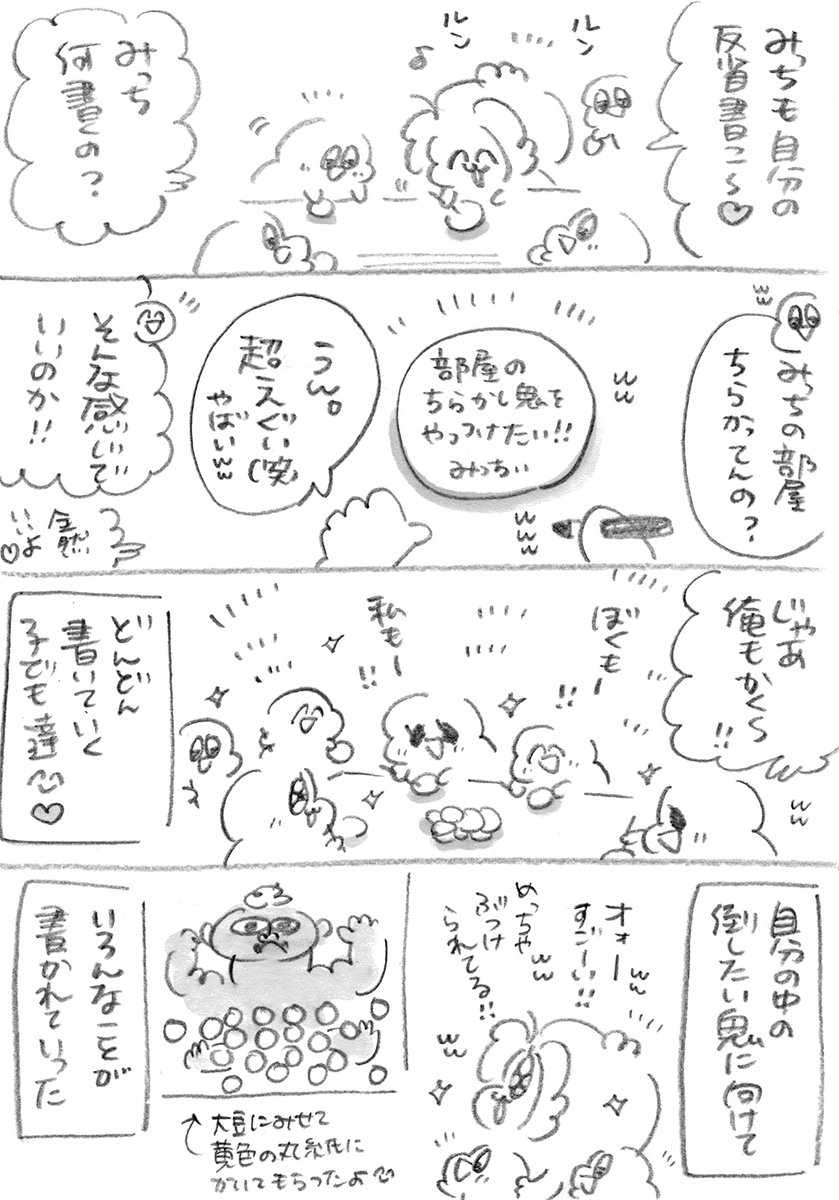 みっちも自分の
反省書こ〜♡
ルン
ルン
♪
みっち
何書くの？
みっちの部屋
ちらかってんの？
ww
ww
部屋の
ちらかし鬼を
やっつけたい!!
みっちぃ
www
うん。
超えぐい(笑)
やばいww
そんな感じで
いいのか!!
全然
いいよ
♡
じゃあ
俺もかく〜!!
ww
ぼくもー!!
私もー!!
どんどん
書いていく
子ども達♡
自分の中の
倒したい鬼に向けて
オォーww
すごーい!!
ww
めっちゃ
ぶつけ
られてる!!
ww
↑大豆にみせて
黄色の丸い紙に
かいてもらったよ
いろんなことが
書かれていった